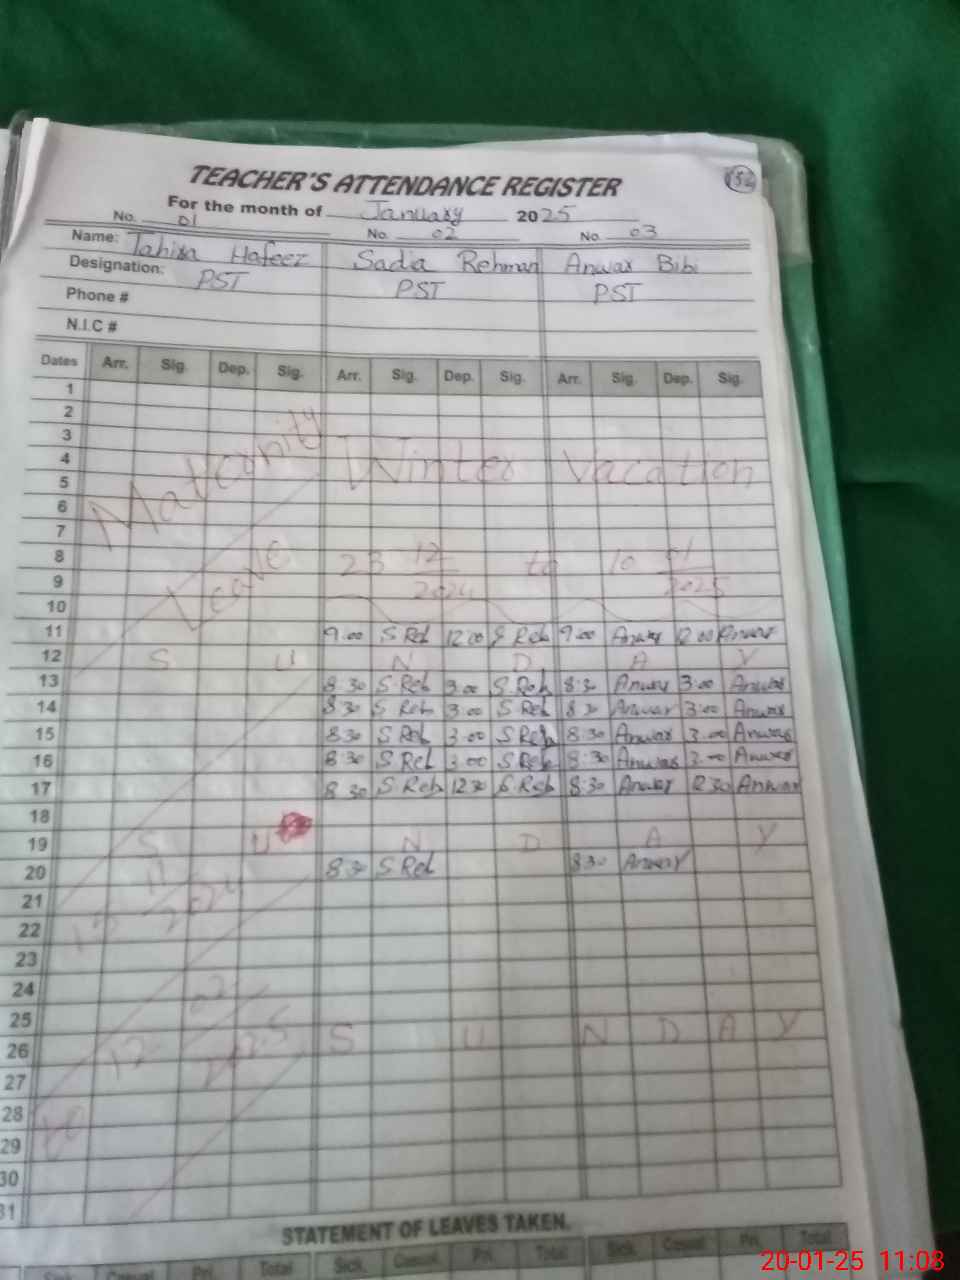 TEACHER'S ATTENDANCE REGISTER
For the month of January 2025
No. 01 No. 02 No. 03
Name: Tahira Hafeez Sadia Rehman Anwar Bibi
Designation: PST PST PST
Phone #
N.I.C #
Dates Arr. Sig. Dep. Sig. Arr. Sig. Dep. Sig. Arr. Sig. Dep. Sig.
1
2
3
4 Maternity Winter Vacation
5
6
7
8 Leave 23 12 to 10 01
9 2024 2025
10
11 9.00 S Reh 12.00 S Reh 9.00 Anwar 12.00 Anwar
12 S U N D A Y
13 8:30 S.Reh 3.00 S.Reh 8:30 Anwar 3.00 Anwar
14 8:30 S Reh 3.00 S.Reh 8:30 Anwar 3.00 Anwar
15 8:30 S Reh 3.00 S Reh 8:30 Anwar 3.00 Anwar
16 8:30 S Reh 3.00 S Reh 8:30 Anwar 3.00 Anwar
17 8:30 S.Reh 12:30 S.Reh 8:30 Anwar 12:30 Anwar
18
19 S U N D A Y
20 8:30 S.Reh 8:30 Anwar
21 11
22 2024
23
24
25 02
26 12 2025 S U N D A Y
27
28
29
30
31
STATEMENT OF LEAVES TAKEN.
Sick. Casual. Pri. Total Sick. Casual. Pri. Total
20-01-25 11:08